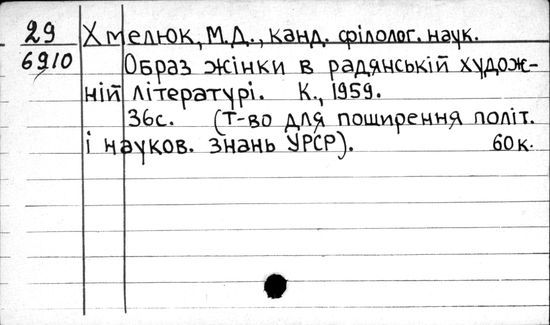 29 Хмелюк, М.Д., канд. філолог. наук.
6910 Образ жінки в радянській худож-
ній літературі. К., 1959.
36с. (Т-во для поширення політ.
і науков. знань УРСР). 60к.